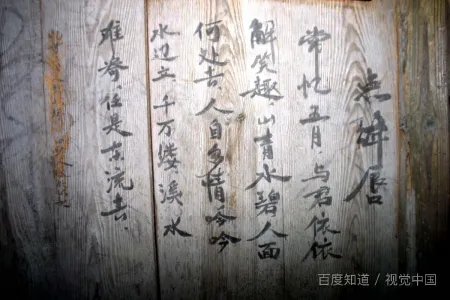 点绛唇
常忆五月,与君依依
解笑趣,山青水碧人面
何处去人自多情吟吟
水边立,千万缕,溪水
难寄,任是东流去
百度知道 / 视觉中国